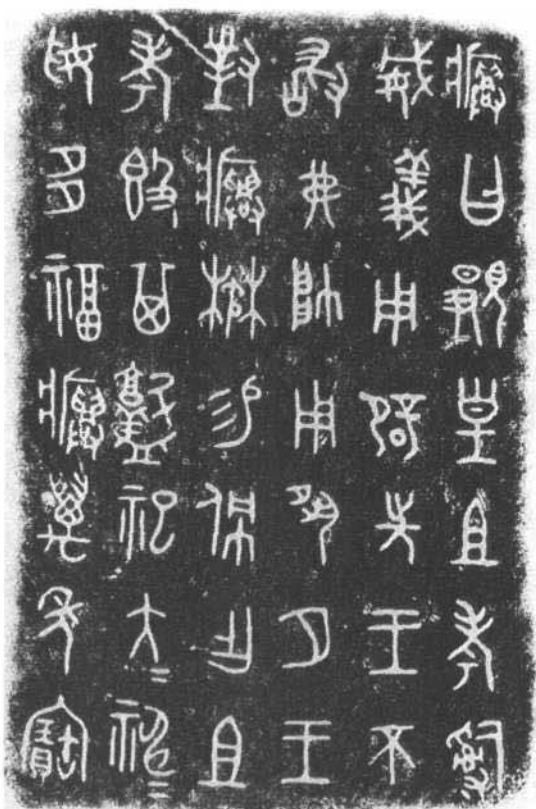 𤼈曰覭皇且考𤔲
威義用辟先王不
敢弗帥用夙夕王
對𤼈楙易佩乍且
考𣪘其𢾭祀大=神=
妥多福𤼈萬年寶